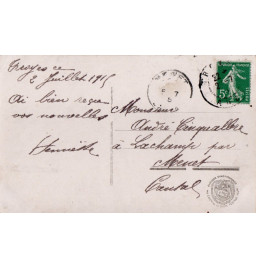 Troyes ce
2 Juillet 1915
Ai bien reçu
vos nouvelles
Henriette
Monsieur
André Cinqualbre
à Lachamp par
Menet
Cantal
5